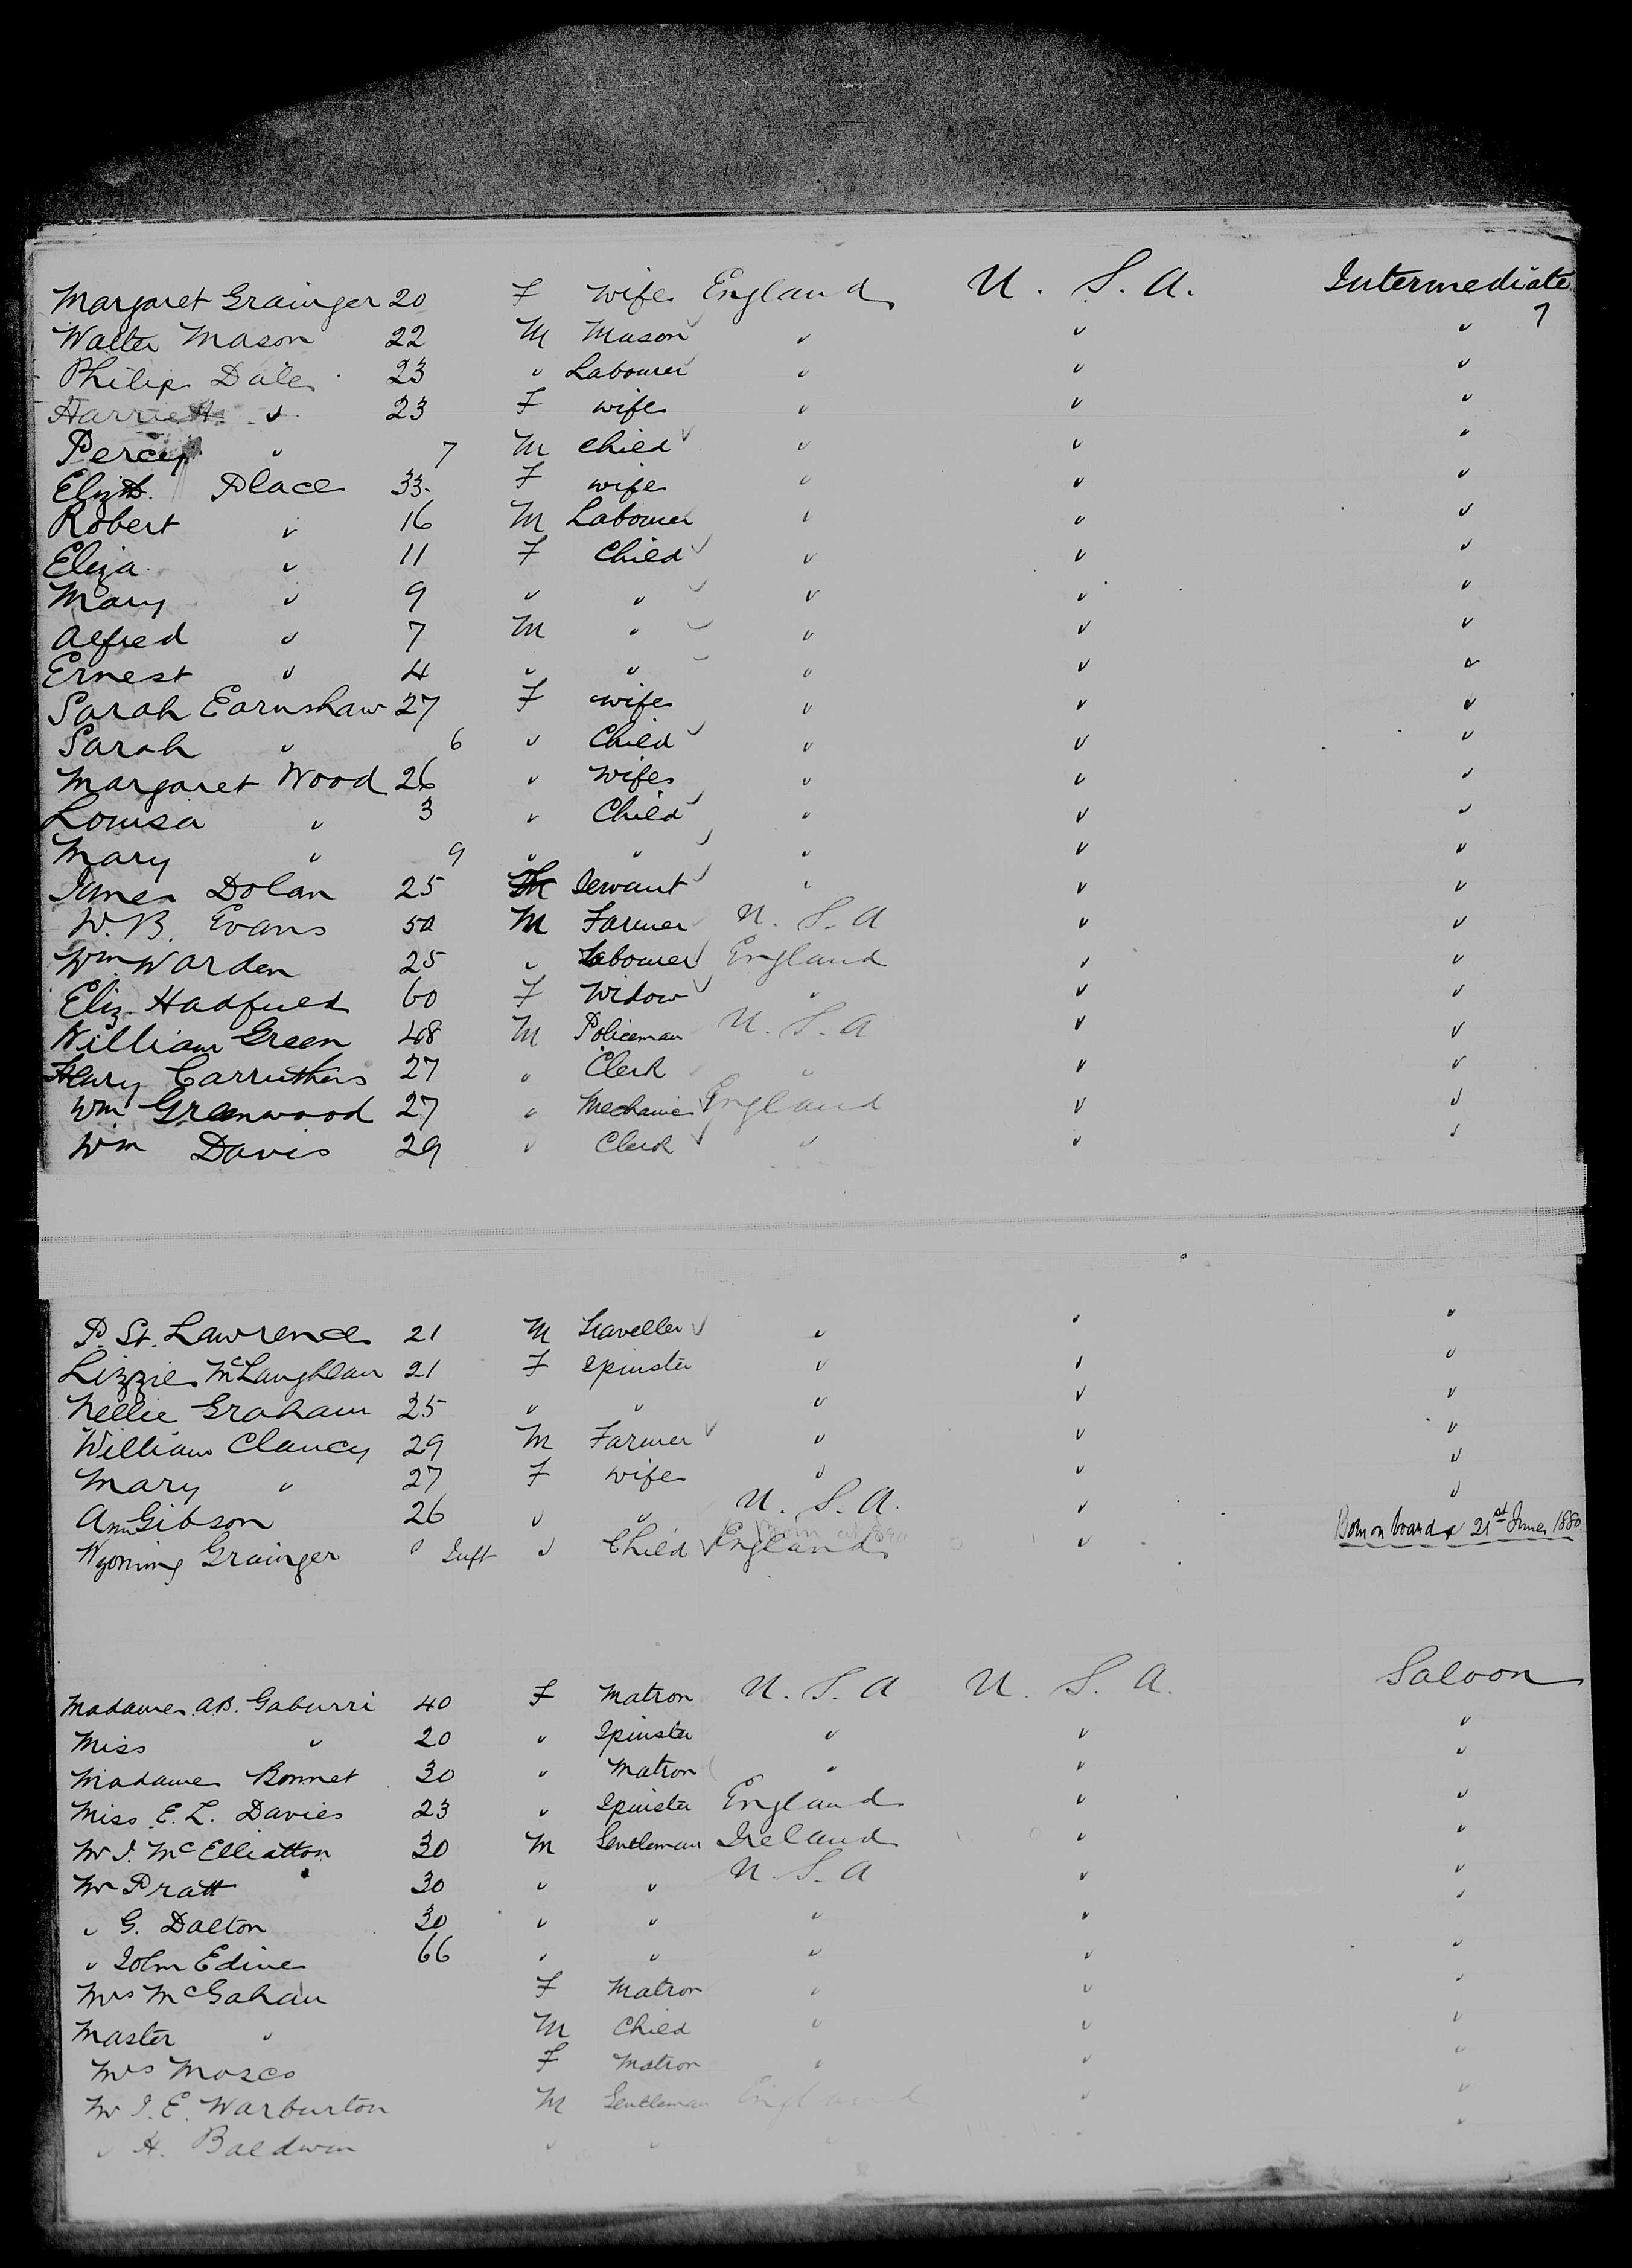 Margaret Grainger 20 F Wife England U. S. A. Intermediate
7
Walter Mason 22 M Mason " " "
Philip Dale 23 " Labourer " " "
Harriett " 23 F wife " " "
Percy " 7 M child " " "
Elizth. Place 33 F wife " " "
Robert " 16 M Labourer " " "
Eliza " 11 F Child " " "
Mary " 9 " " " " "
Alfred " 7 M " " " "
Ernest " 4 " " " " "
Sarah Earnshaw 27 F wife " " "
Sarah " 6 " Child " " "
Margaret Wood 26 " Wife " " "
Louisa " 3 " Child " " "
Mary " 9 " " " " "
James Dolan 25 M Servant " " "
W. B. Evans 50 M Farmer U. S. A " "
Wm Warden 25 " Labourer England " "
Eliz. Hadfield 60 F Widow " " "
William Green 48 M Policeman U. S. A " "
Henry Carruthers 27 " Clerk " " "
Wm Greenwood 27 " Mechanic England " "
Wm Davis 29 " Clerk " " "
P. St. Lawrence 21 M Traveller " " "
Lizzie McLaughlan 21 F Spinster " " "
Nellie Graham 25 " " " " "
William Clancy 29 M Farmer " " "
Mary " 27 F wife " " "
Ann Gibson 26 " " U. S. A. " "
Wyoming Grainger Inft " Child England Born at Sea " Born on board 21st June 1880
Madame A.B. Gaburri 40 F Matron U. S. A U. S. A. Saloon
Miss " 20 " Spinster " " "
Madame Bonnet 30 " Matron " " "
Miss E. L. Davies 23 " Spinster England " "
Mr J. McElliatton 30 M Gentleman Ireland " "
Mr Pratt 30 " " U. S. A " "
" G. Dalton 30 " " " " "
" John Edine 66 " " " " "
Mrs McGahan F Matron " " "
Master " M Child " " "
Mrs Mosco F Matron " " "
Mr J. E. Warburton M Gentleman England " "
" H. Baldwin " " " "